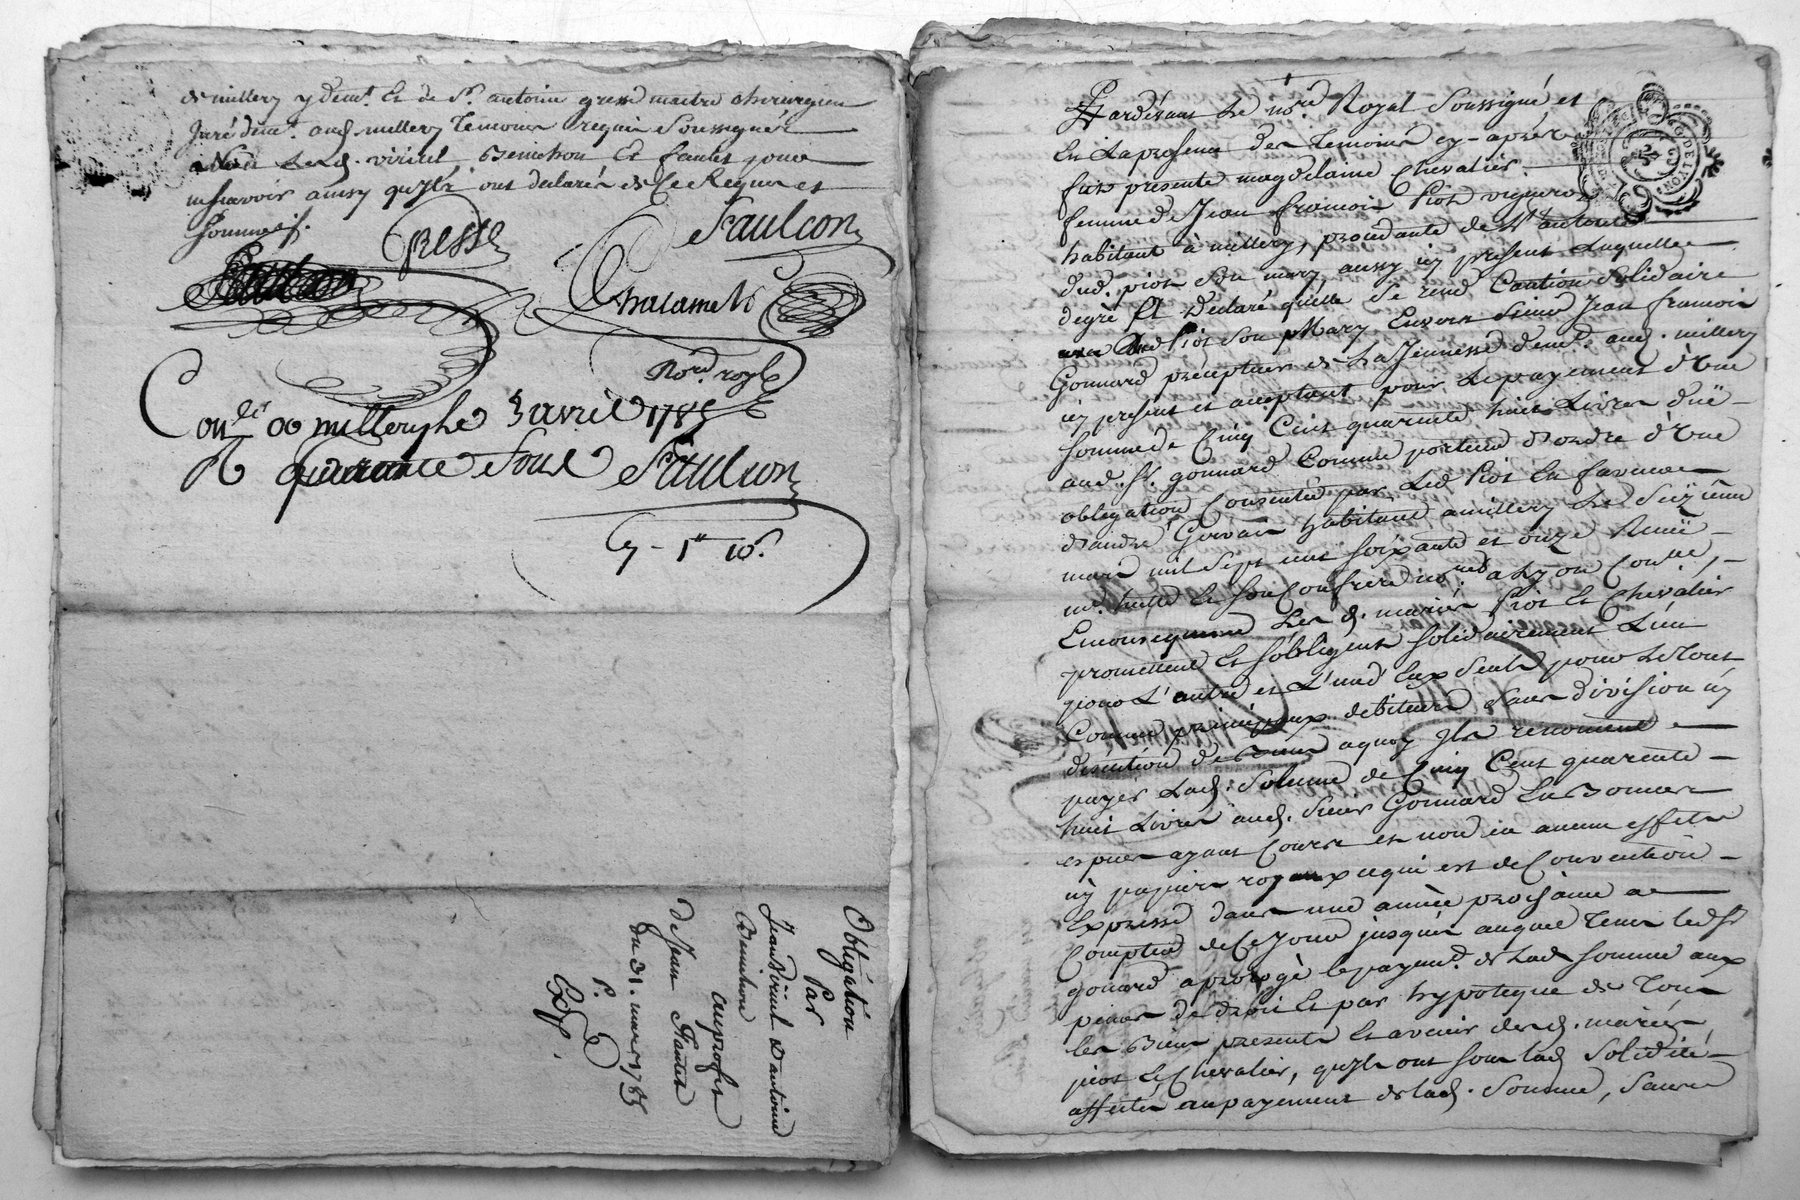 de millery y demt. Et de Sr. antoine gresse maitre chirurgien
Juré demt. aud. millery temoins requis Soussignés
Non Led. viriut, Benichon Et fautet pour
ne scavoir ainsy qu'ils ont declarés de Ce Requis et
Sommés.
GRESSE
Faulcon
Chatamel
Nore. royl
Conlé a millery le 3 avril 1785
R quarante Sous Faulcon
Cy - 1tt 10s
Obligation
Par
Jean Viriut & antoine
Benichon
au profit
De Jean Fautet
Du 31. mars 1785
P.
Exp.
Pardevant Le nore. Royal Soussigné et
En La presence des Temoins cy-après
fut presente magdelaine Chevalier
femme de Jean françois Piot vigneron
habitant à millery, procedante de L'autorité
dud. piot Son mary aussy icy present Laquelle
degré A Declaré qu'elle Se rend Caution Solidaire
dud Piot Son Mary Envers Sieur Jean françois
Gonnard precepteur de La Jeunesse demt. aud. millery
icy present et acceptant pour Le payement d'une
Somme de Cinq Cent quarante huit Livres düe
aud. Sr. gonnard Comme porteur d'ordre d'une
obligation Consentie par Led Piot En faveur
d'andré Gervais habitant a millery Le Seizième
mars mil Sept cent soixante et onze Reçüe
me. et Son Confrere nores. a Lyon Conlée,
En consequence Les d. mariés Piot Et Chevalier
promettent Et s'obligent solidairement L'un
pour L'autre et L'un d'Eux Seul pour Le tout
Comme principaux debiteurs Sans division ny
discution de Biens aquoy Ils renoncent
payer Lad. Somme de Cinq Cent quarante
huit Livres aud. Sieur Gonnard En Bonnes
especes ayant Cours et non en aucuns effets
ny papiers royaux ce qui est de Convention
Expresse dans une année prochaine a
Compter de Ce Jour jusques auquel Tems led Sr
gonnard a prorogé le payemt. de Lad Somme aux
peines de droit Et par hypoteque de Tous
les Biens presents Et avenir desd. mariés
piot Et Chevalier, qu'ils ont sous lad Solidité
affectés au payement de lad. Somme, Sans